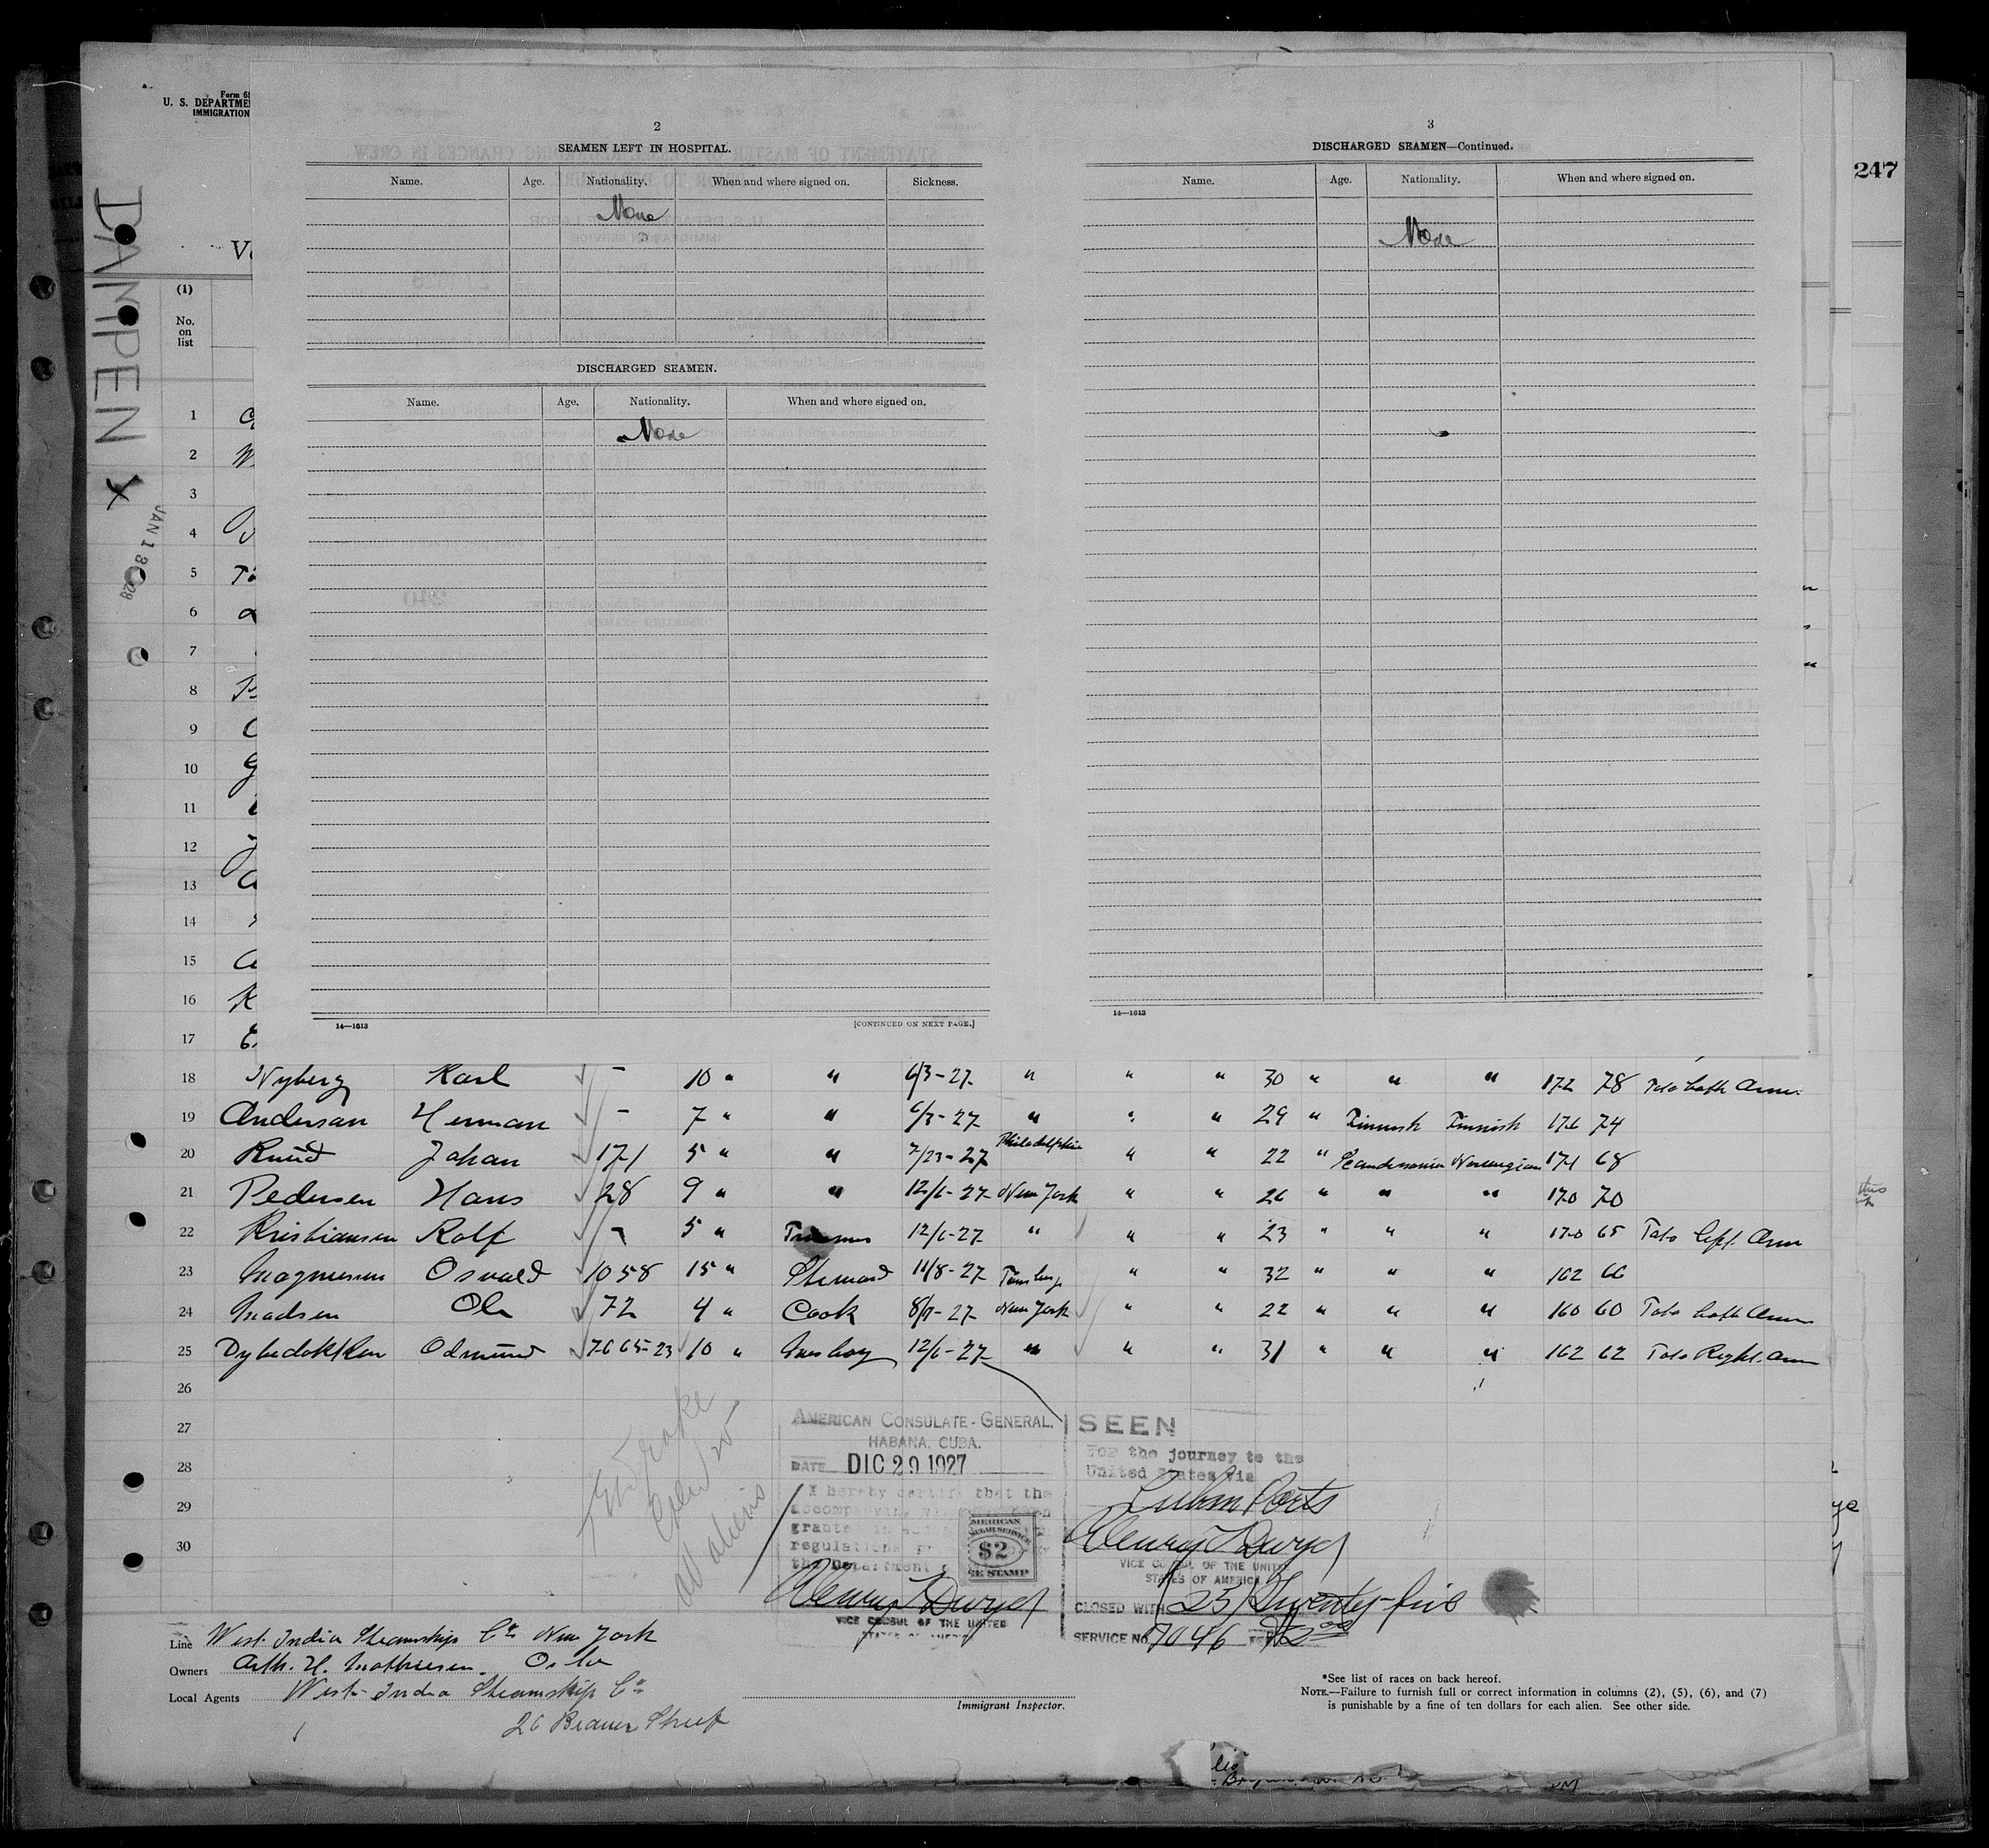 Form 68
U. S. DEPARTME
IMMIGRATION
247
2
SEAMEN LEFT IN HOSPITAL.
Name. Age. Nationality. When and where signed on. Sickness.
None
DISCHARGED SEAMEN.
Name. Age. Nationality. When and where signed on.
None
14—1613 [CONTINUED ON NEXT PAGE.]
3
DISCHARGED SEAMEN—Continued.
Name. Age. Nationality. When and where signed on.
None
14—1613
DAMPEN X
JAN 18 1928
(1)
No.
on
list
1
2
3
4
5
6
7
8
9
10
11
12
13
14
15
16
17
18 Nyberg Karl - 10 " " 6/3-27 " " " 30 " " " 172 78 Tato both Arms
19 Andersan Herman - 7 " " 6/3-27 " " " 29 " Finnish Finnish 176 74
20 Ruud Johan 171 5 " " 7/23-27 Philadelphia " " 22 " Scandinavian Norwegian 171 68
21 Pedersen Hans 28 9 " " 12/6-27 New York " " 26 " " " 170 70
22 Kristiansen Rolf - 5 " 12/6-27 " " " 23 " " " 170 65 Tato left Arm
23 Magnussen Osvald 1058 15 " Steward 11/8-27 " " 32 " " " 162 66
24 Madsen Ole 72 4 " Cook New York " " 22 " " " 160 60 Tato both Arms
25 Odmund 7665-23 10 " Messboy 12/6-27 " " " 31 " " " 162 62 Tato Right Arm
26
27
28
29
30
AMERICAN CONSULATE-GENERAL,
HABANA, CUBA.
DATE DIC 29 1927
I hereby certify that the
accompanying
granted in
regulations
the Department
AMERICAN
$2
FEE STAMP
VICE CONSUL OF THE UNITED
STATES OF AMERICA
SEEN
For the journey to the
United States via
Cuban Ports
VICE CONSUL OF THE UNITED
STATES OF AMERICA
CLOSED WITH 25/Twenty-five
SERVICE NO. 7046
all aliens
Line West India Steamship Co New York
Owners Arth. H. Mathiesen. Oslo
Local Agents West India Steamship Co
26 Beaver Street
Immigrant Inspector.
*See list of races on back hereof.
NOTE.—Failure to furnish full or correct information in columns (2), (5), (6), and (7)
is punishable by a fine of ten dollars for each alien. See other side.